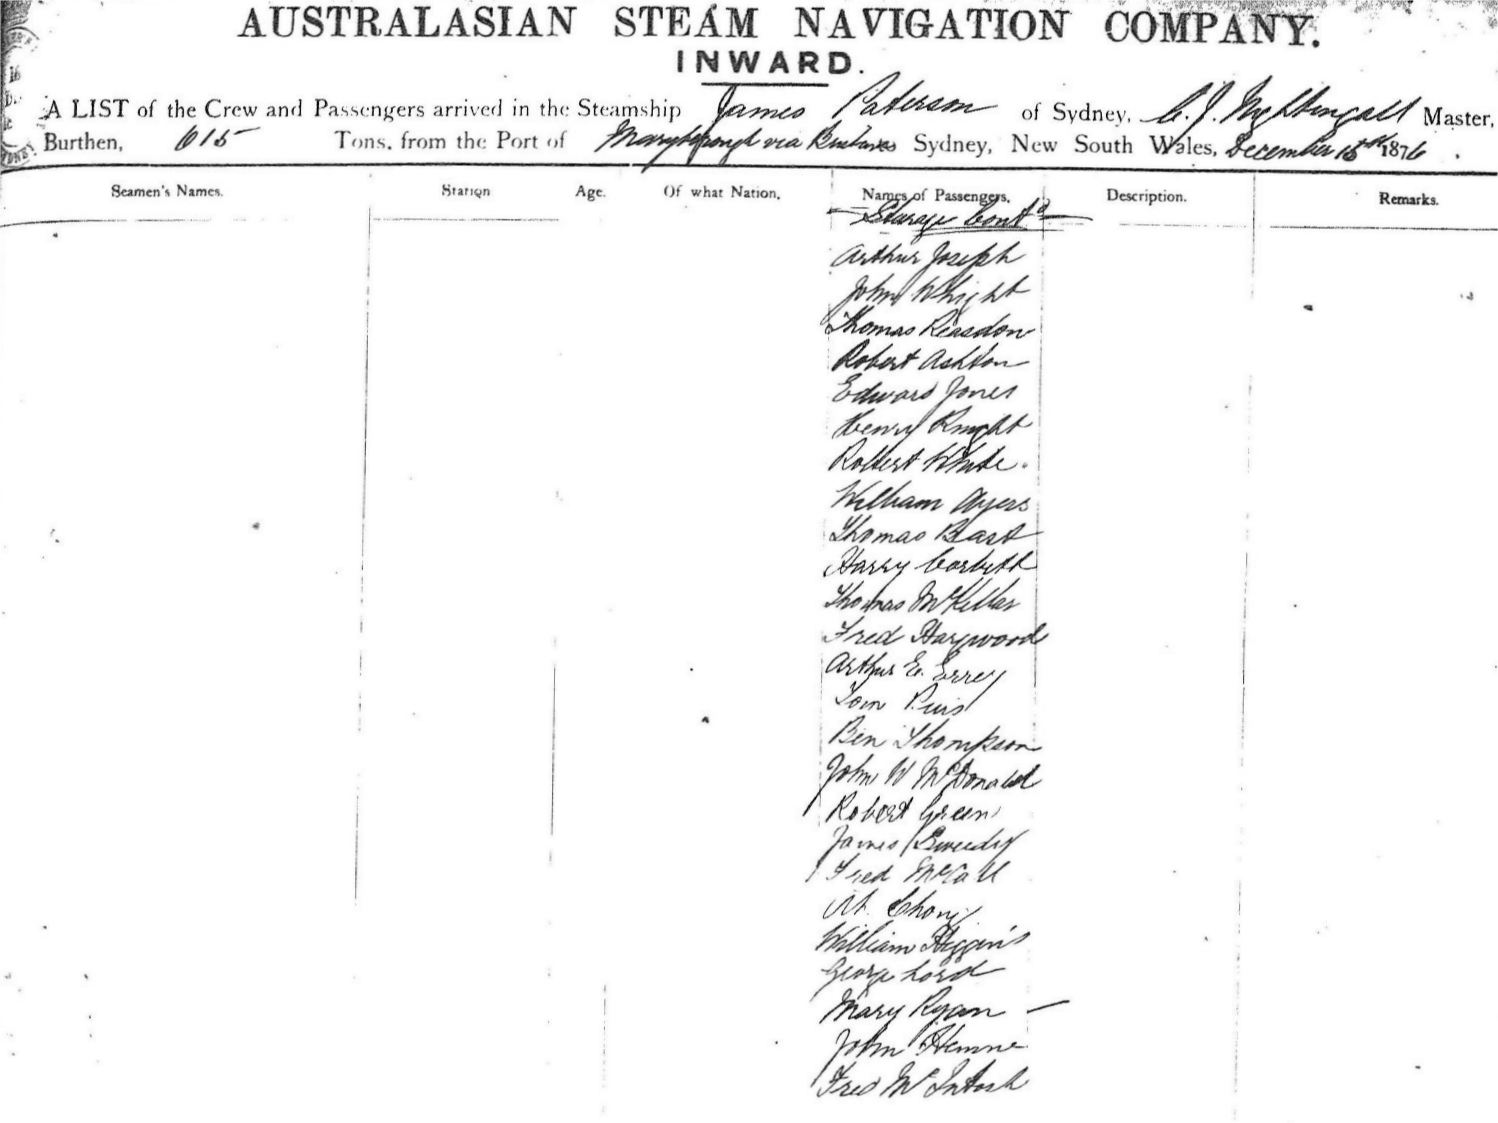 AUSTRALASIAN STEAM NAVIGATION COMPANY.
INWARD.
A LIST of the Crew and Passengers arrived in the Steamship James Paterson of Sydney, C. J. Nightingall Master,
Burthen, 615 Tons, from the Port of Maryborough via Sydney, New South Wales, December 1876.
Seamen's Names. Station Age. Of what Nation, Names of Passengers, Description. Remarks.
Steerage Contd
Arthur Joseph
John Whight
Thomas Reasdon
Robert Ashton
Edward Jones
Henry Knight
Robert White.
William Ayers
Thomas Bast
Harry Corbett
Thomas McKellar
Fred Haywood
Arthur E. Errey
Tom
Ben Thompson
John W McDonald
Robert Green
James
Fred McCall
Ah. Chong
William Higgins
George Lord
Mary Ryan —
John
Fred McIntosh